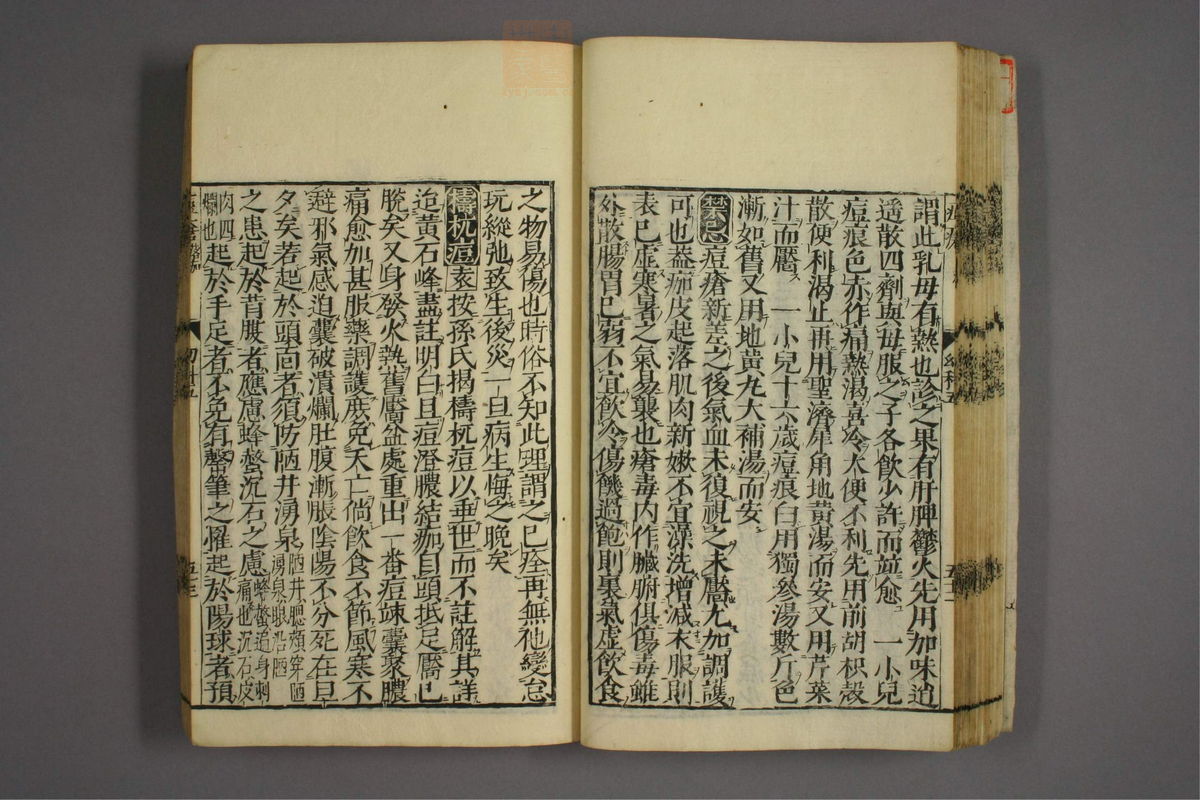 謂此乳母有熱也診之果有肝脾鬱火先用加味逍
遥散四劑與母服之子各飲少許而並愈 一小兒
痘痕色赤作痛熱渴喜冷大便不利先用前胡枳殼
散便利渴止再用聖濟犀角地黄湯而安又用芹菜
汁而靨 一小兒十六歲痘痕白用獨參湯數斤色
漸如舊又用地黄丸大補湯而安
禁忌 痘瘡新差之後氣血未復視之未靨尤加調護
可也蓋痂皮起落肌肉新嫩不宜澡洗增減衣服則
表已虛寒暑之氣易襲也瘡毒内作臟腑俱傷毒雖
外散腸胃已弱不宜飲冷傷饑過飽則裏氣虛飲食
之物易傷也時俗不知此理謂之已痊再無他變怠
玩縱弛致生後災一旦病生悔之晚矣
檮杌痘 袁按孫氏揭檮杌痘以垂世而不註解其詳
迨黄石峰盡註明白且痘澄膿結痂自頭抵足靨已
脫矣又身發火熱舊靨盆處重出一番痘竦囊聚膿
痛愈加甚服藥調護庶免夭亡倘飲食不節風寒不
避邪氣感迫囊破潰爛肚腹漸脹陰陽不分死在旦
夕矣若起於頭面者須防陋井湧泉 陋井腮頰穿陋
湧泉眼沿陋
之患起於背腹者應慮蜂螫沉石之慮 蜂螫追身刺
痛也沉石皮
肉四
爛也 起於手足者不免有罄筆之懼起於陽球者預
幼科五
五十三